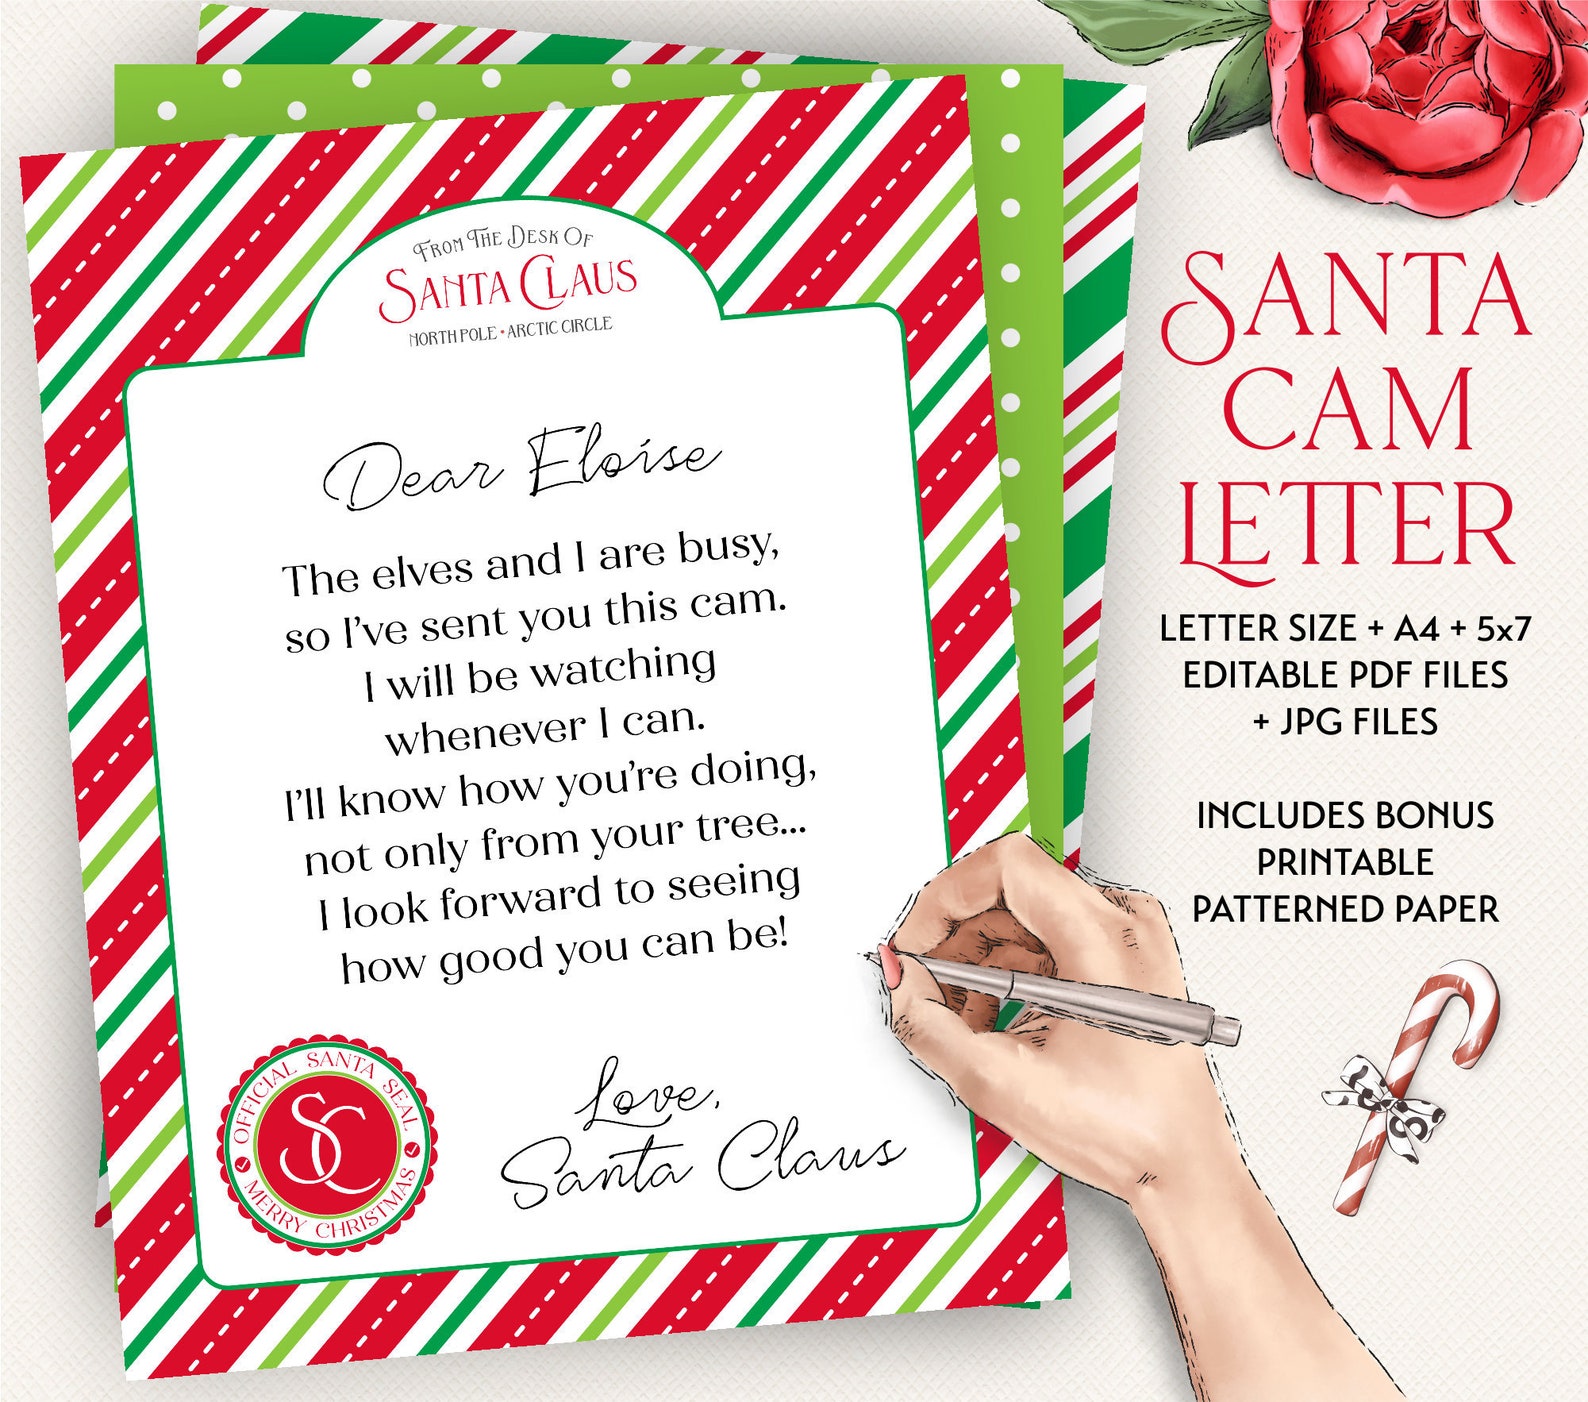 From The Desk Of
Santa Claus
North Pole • Arctic Circle
Dear Eloise
The elves and I are busy,
so I've sent you this cam.
I will be watching
whenever I can.
I'll know how you're doing,
not only from your tree...
I look forward to seeing
how good you can be!
Love,
Santa Claus
OFFICIAL SANTA SEAL
SC
MERRY CHRISTMAS
SANTA
CAM
LETTER
LETTER SIZE + A4 + 5x7
EDITABLE PDF FILES
+ JPG FILES
INCLUDES BONUS
PRINTABLE
PATTERNED PAPER